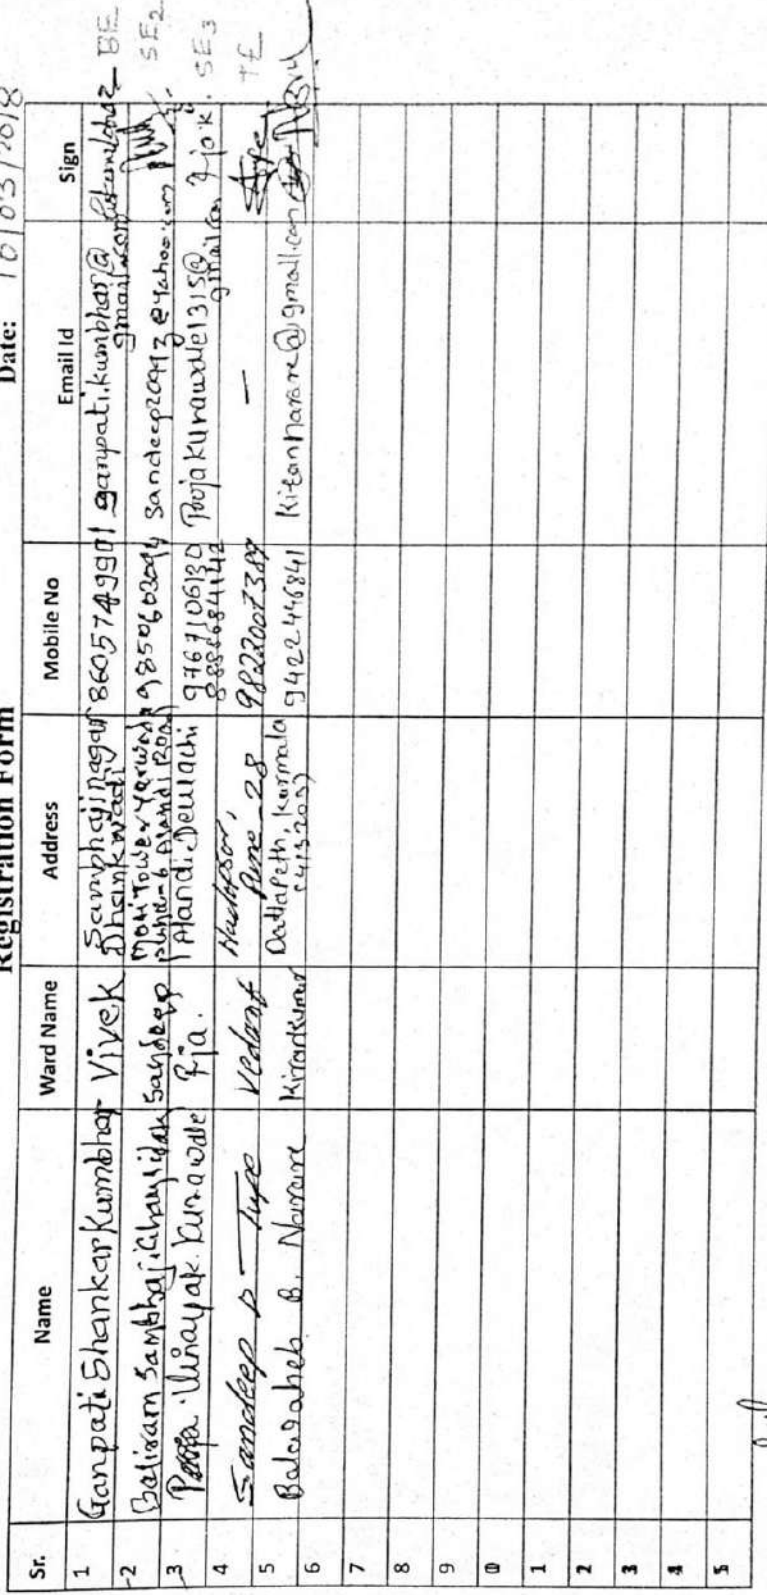 Registration Form
Date: 10/03/2018
Sr. Name Ward Name Address Mobile No Email Id Sign
1 Ganpati Shankar Kumbhar Vivek Sambhajinagar Dhankwadi 8605749901 ganpati.kumbhar@gmail.com BE
2 Baliram Sambhaji Sandeep Moti Tower Yerwada Alandi Road 9850603094 sandeep20913@yahoo.com SE2
3 Pooja Vinayak. Kurawade Pja. Alandi Dewlachi 9767106130 Poojakurawade1315@gmail.com SE3
4 Sandeep D Tupe Vedant Hadapsar, Pune-28 9822007389 — TE
5 Balasaheb B. Narare Kirankumar Dattapeth, Karmala (413203) 9422446841 kirannarare@gmail.com
6
7
8
9
0
1
2
3
4
5